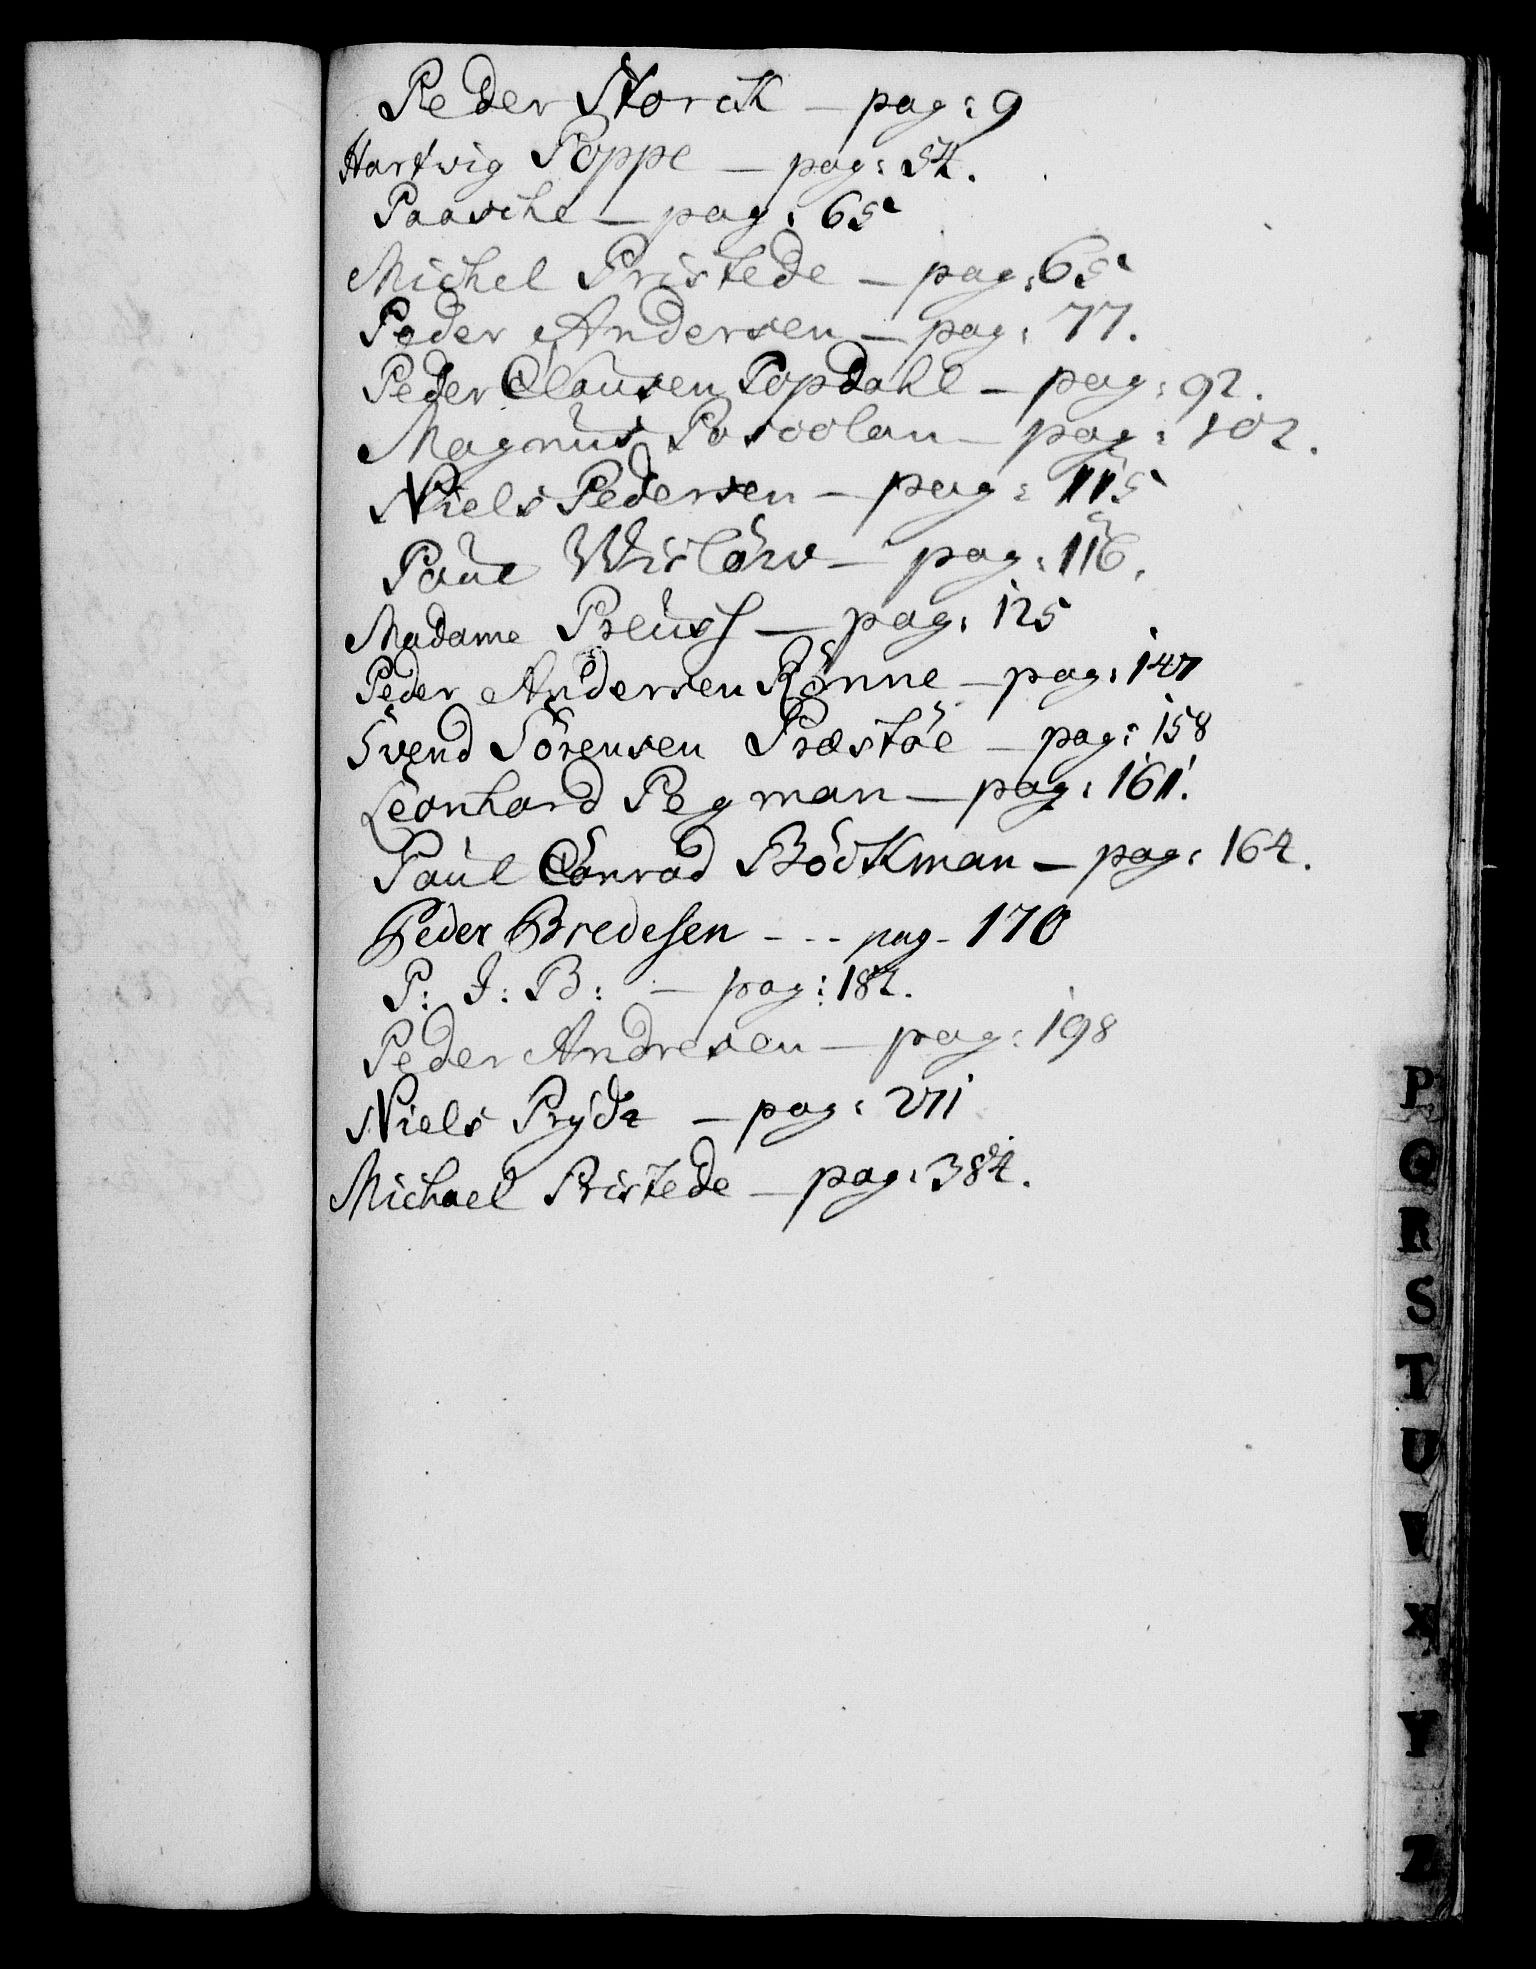 Peder Storck – pag: 9
Hartvig Poppe – pag: 54.
Paasche – pag: 65
Michel Pristede – pag: 65
Peder Andersen – pag: 77.
Peder Clausen Popdahl – pag: 92.
Magnus Pasoolan – pag: 102.
Niels Pedersen – pag: 115
Paul Wislöw – pag: 116.
Madame Preuss – pag: 125
Peder Andersen Rönne – pag: 147
Svend Sörensen Præstöe – pag: 158
Leonhard Pegman – pag: 161.
Paul Conrad Böckman – pag: 164.
Peder Bredesen - - - pag - 170
P: J: B: – pag: 182.
Peder Andresen – pag: 198
Niels Prydz – pag: 271
Michael Pristede – pag: 384.
P
Q
R
S
T
U
V
X
Y
Z